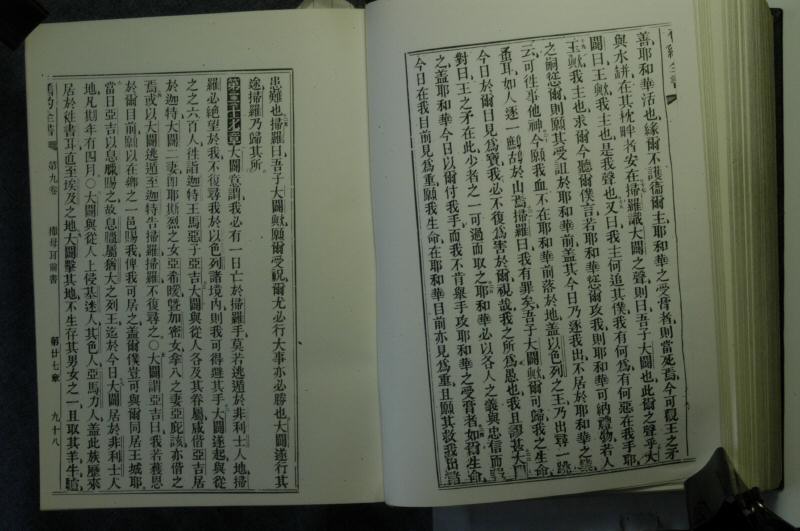 善耶和華活也緣爾不護衛爾主耶和華之受膏者則當死焉今可觀王之矛
與水缾在其枕畔者安在掃羅識大闢之聲則曰吾子大闢也此爾之聲乎大
闢曰王歟我主也是我聲也又曰我主何追其僕我有何為有何惡在我手耶
王歟我主也求爾今聽爾僕言若耶和華慫爾攻我則耶和華可納禮物若人
之嗣慫爾則願其受詛於耶和華前蓋其今日乃逐我出不居於耶和華之
云可往事他神今願我血不在耶和華前落於地蓋以色列之王乃出尋一
蚤耳如人逐一鷓鴣於山焉掃羅曰我有罪矣吾子大闢歟爾可歸我之生命
今日於爾目見為寶我必不復為害於爾視哉我之所為愚也我且謬甚大
對曰王之矛在此少者之一可過而取之耶和華必以各人之義與忠信而
之蓋耶和華今日以爾付我手而我不肯舉手攻耶和華之受膏者如爾生命
今日在我目前見為重願我生命在耶和華目前亦見為重且願其救我出諸
患難也掃羅曰吾子大闢歟願爾受祝爾尤必行大事亦必勝也大闢遂行其
途掃羅乃歸其所
第二十七章大闢意謂我必有一日亡於掃羅手莫若逃遁於非利士人地掃
羅必絕望於我不復尋我於以色列諸境內則我可得避其手大闢遂起與從
之之六百人往詣迦特王馬惡子亞吉大闢與從人各及其眷屬咸偕亞吉居
於迦特大闢二妻即耶斯烈之女亞希暖暨加密女拿八之妻亞庇該亦偕之
焉或以大闢逃遁至迦特告掃羅掃羅不復尋之〇大闢謂亞吉曰我若獲恩
於爾目前願以在鄉之一邑賜我俾我可居之蓋爾僕豈可與爾同居王城耶
當日亞吉以息臘賜之故息臘屬猶大之列王迄於今日大闢居於非利士人
地凡期年有四月〇大闢與從人上侵基迷人其色人亞馬力人蓋此族歷來
居於徃書耳直至埃及之地大闢擊其地不生存其男女之一且取其羊牛
舊約全書 第九卷 撒母耳前書 第廿七章 九十八